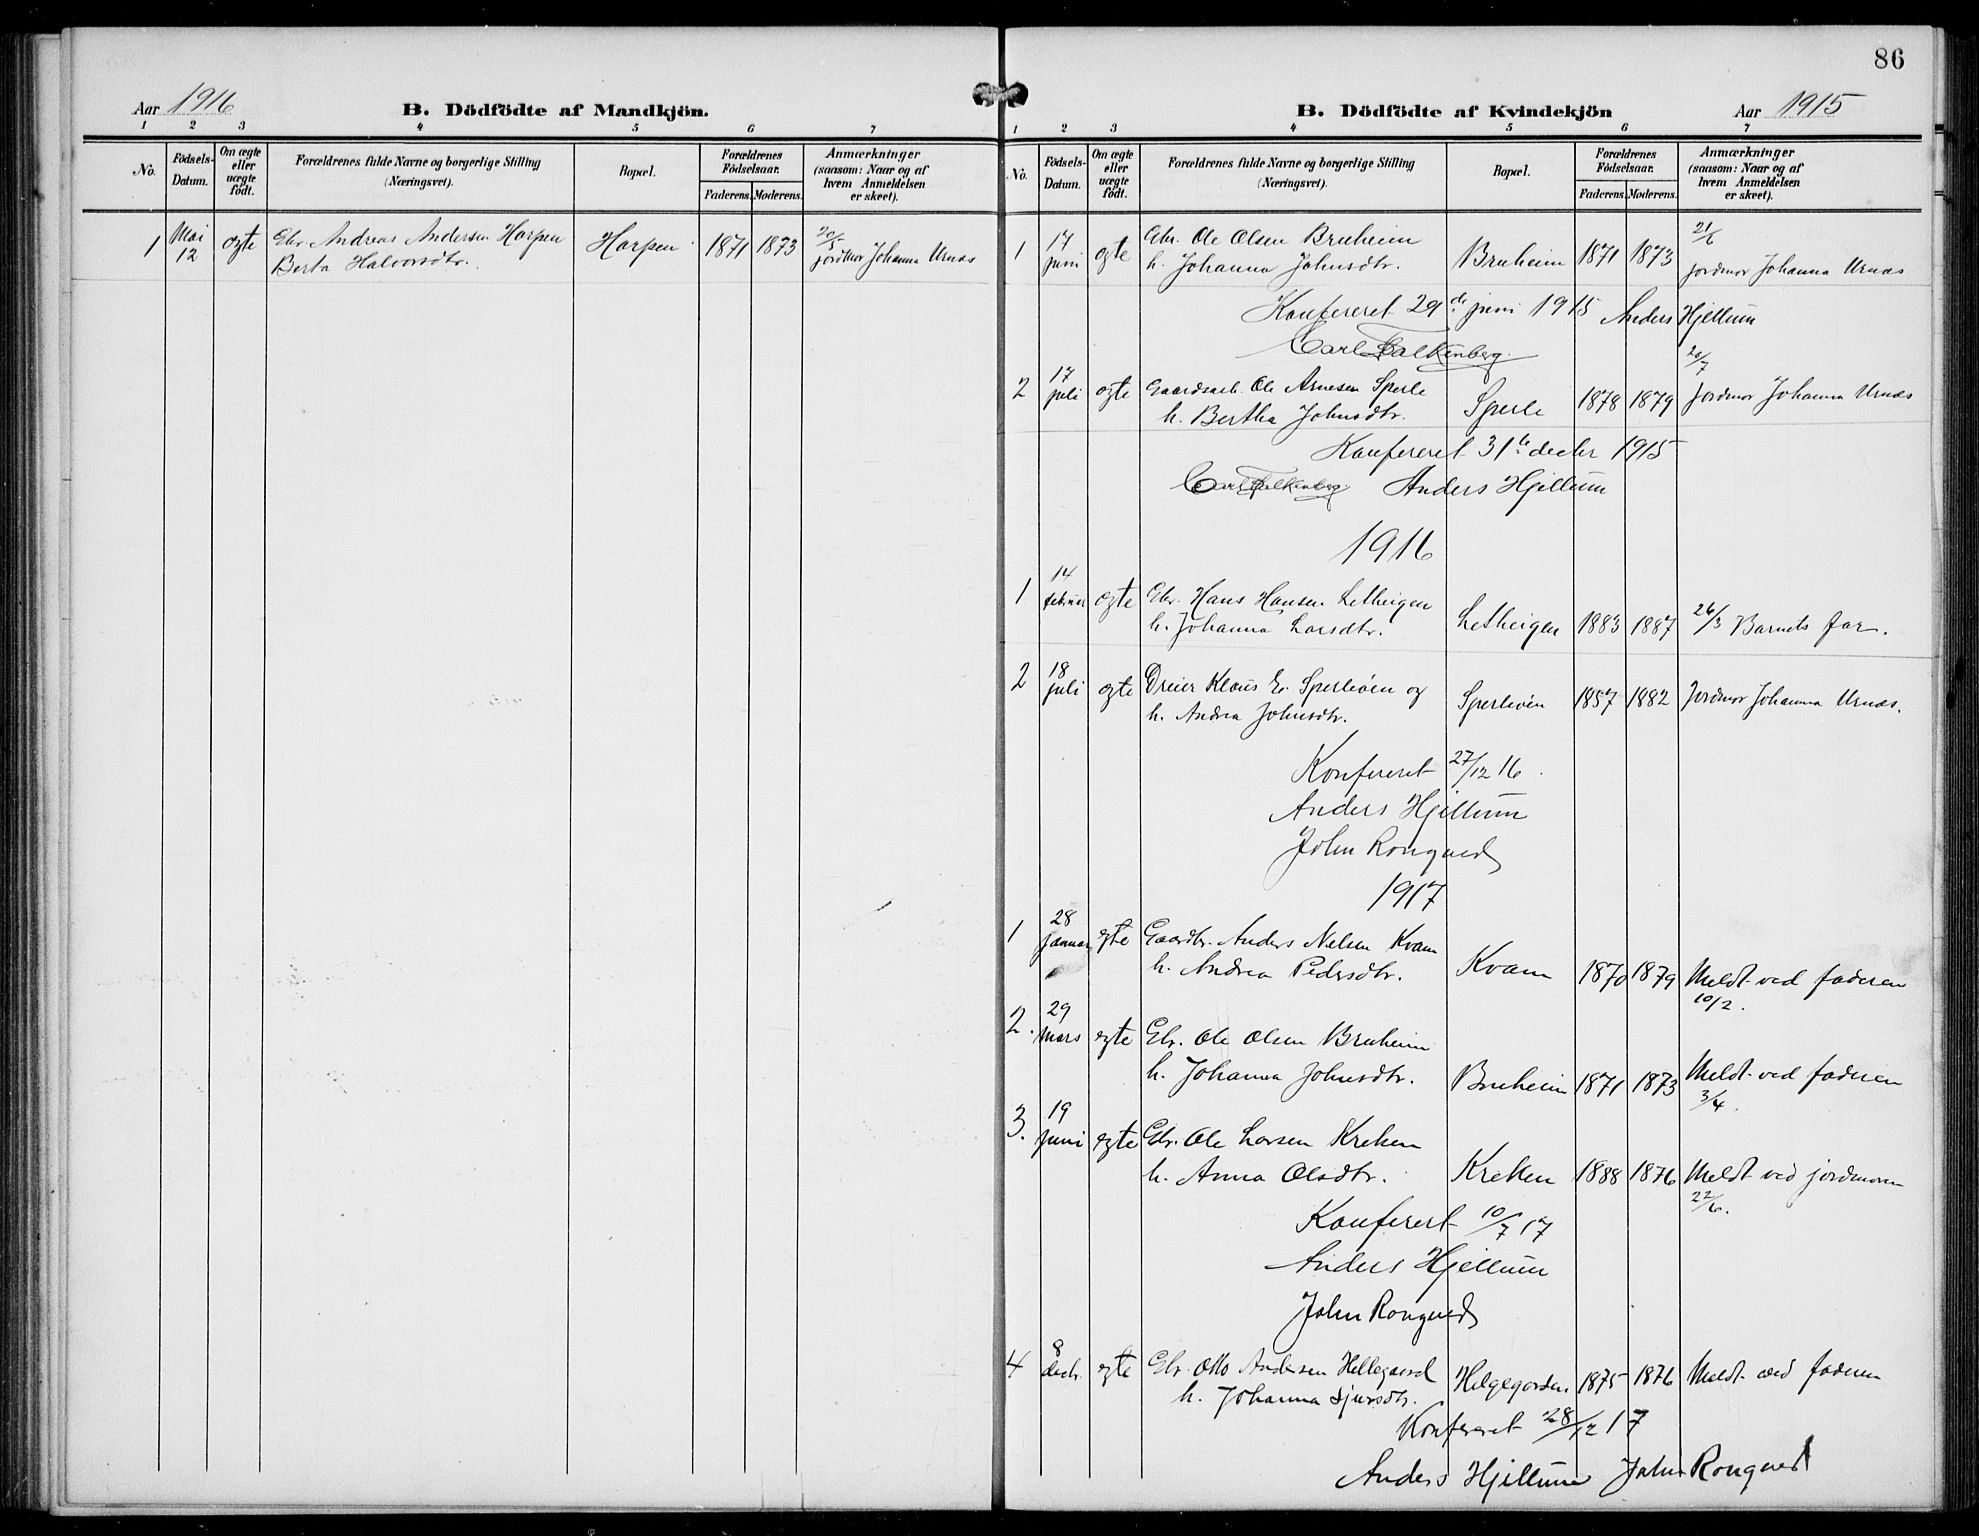 Aar 1916
B. Dödfödte af Mandkjön.
1 2 3 4 5 6 7
No.
Födsels-Datum.
Om ægte eller uægte födt.
Forældrenes fulde Navne og borgerlige Stilling (Næringsvei).
Bopæl.
Forældrenes Födselsaar.
Faderens. Moderens.
Anmærkninger (saasom: Naar og af hvem Anmeldelsen er skeet).
1 Mai 12 egte Gbr. Andreas Andersen Harpen Harpen 1871 1873 20/5 jordmor Johanna Urnæs
Berta Halvorsdtr.
86
B. Dödfödte af Kvindekjön
Aar 1915
1 2 3 4 5 6 7
No.
Födsels-Datum.
Om ægte eller uægte födt.
Forældrenes fulde Navne og borgerlige Stilling (Næringsvei).
Bopæl.
Forældrenes Födselsaar.
Faderens. Moderens.
Anmærkninger (saasom: Naar og af hvem Anmeldelsen er skeet).
1 17 juni egte Gbr. Ole Olsen Bruheim Bruheim 1871 1873 21/6 jordmor Johanna Urnæs
h. Johanna Johnsdtr.
Konfereret 29de juni 1915 Anders Hjellum
Carl Falkenberg
2 17 juli egte Gaardsarb. Ole Arnesen Sperle Sperle 1878 1879 20/7 Jordmor Johanna Urnæs
h. Bertha Johnsdtr.
Konfereret 31te decbr 1915
Carl Falkenberg Anders Hjellum
1916
1 14 februar egte Gbr. Hans Hansen Letheigen Letheigen 1883 1887 26/3 Barnets far.
h. Johanna Larsdtr.
2 18 juli egte Dreier Klaus Ev. Sperleöen og Sperleöen 1857 1882 Jordmor Johanna Urnæs.
h. Andrea Johnsdtr.
Konfereret 27/12 16.
Anders Hjellum
John Rongved
1917
1 28 januar egte Gaardbr. Anders Nelsen Kvam Kvam 1870 1879 Meldt ved faderen
h. Andrea Pedersdtr. 10/2.
2. 29 mars egte Gbr. Ole Olsen Bruheim
h. Johanna Johnsdtr. Bruheim 1871 1873 Meldt ved faderen 3/4.
3. 19 juni egte Gbr. Ole Larsen Kreken
h. Anna Olsdtr. Kreken 1888 1876 Meldt ved jordmoren 22/6.
Konfereret 10/7 17
Anders Hjellum
John Rongved
4 8 decbr. egte Gbr. Otto Andersen Hellegaard Helgegarden 1875 1876 Meldt ved faderen
h. Johanna Sjursdtr.
Konfereret 28/12 17
Anders Hjellum John Rongved